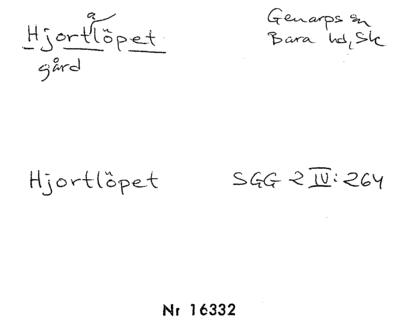 a
Hjortlöpet
gård
Genarps sn
Bara hd, Sk
Hjortlöpet
SGG 2 IV: 264
Nr 16332